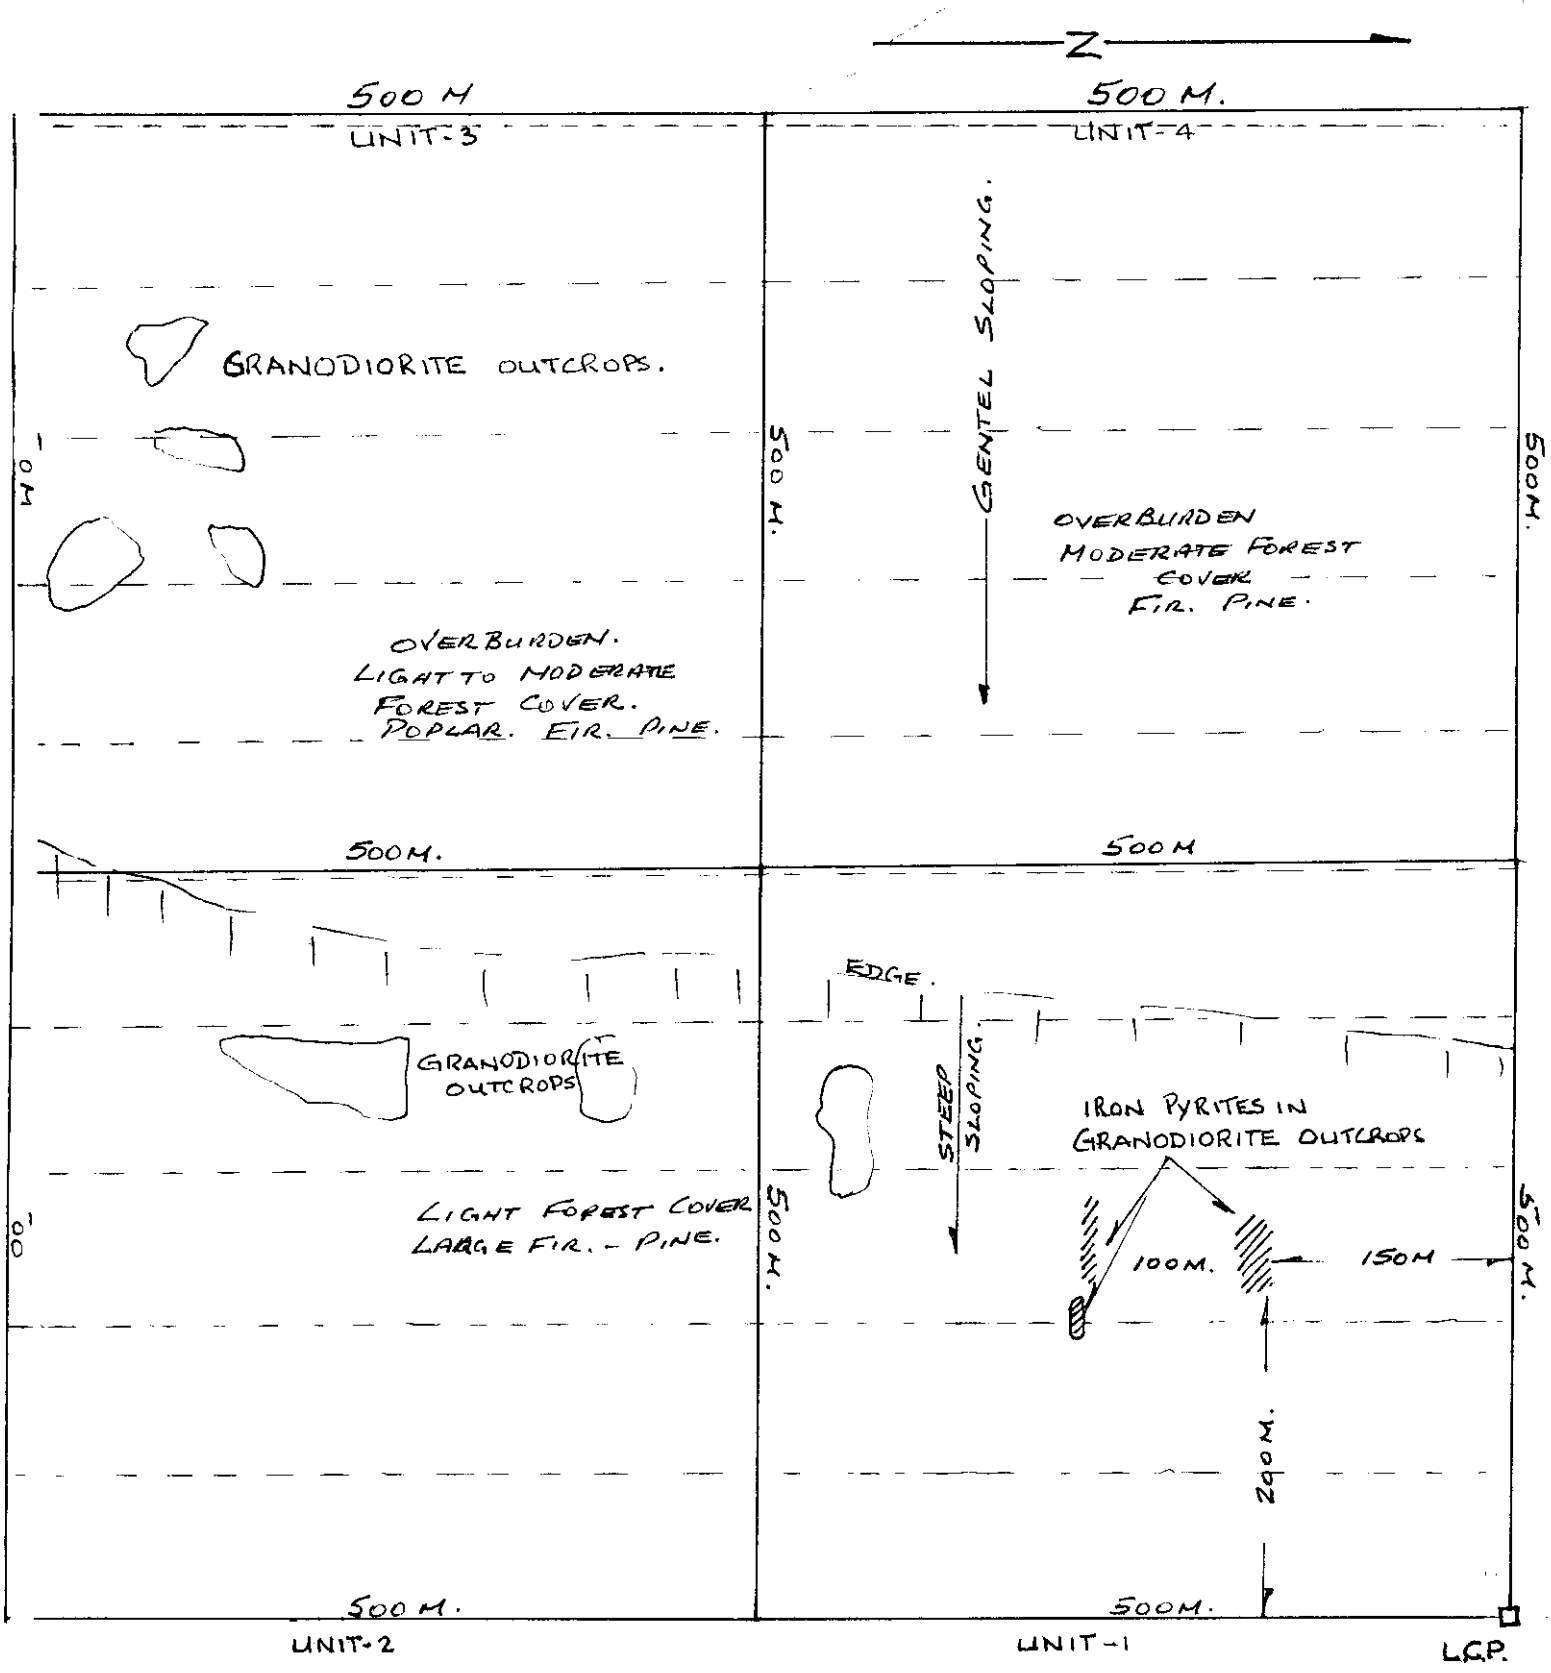 N
500 M
500 M.
UNIT-3
UNIT-4
GENTEL SLOPING.
GRANODIORITE OUTCROPS.
500 M.
500M.
OVERBURDEN
MODERATE FOREST
COVER
FIR. PINE.
OVERBURDEN.
LIGHT TO MODERATE
FOREST COVER.
POPLAR. FIR. PINE.
500M.
500M
EDGE.
STEEP
SLOPING.
GRANODIORITE
OUTCROPS
IRON PYRITES IN
GRANODIORITE OUTCROPS
LIGHT FOREST COVER
LARGE FIR. - PINE.
500 M.
100M.
150M
500 M.
290M.
500 M.
500M.
UNIT-2
UNIT-1
L.C.P.